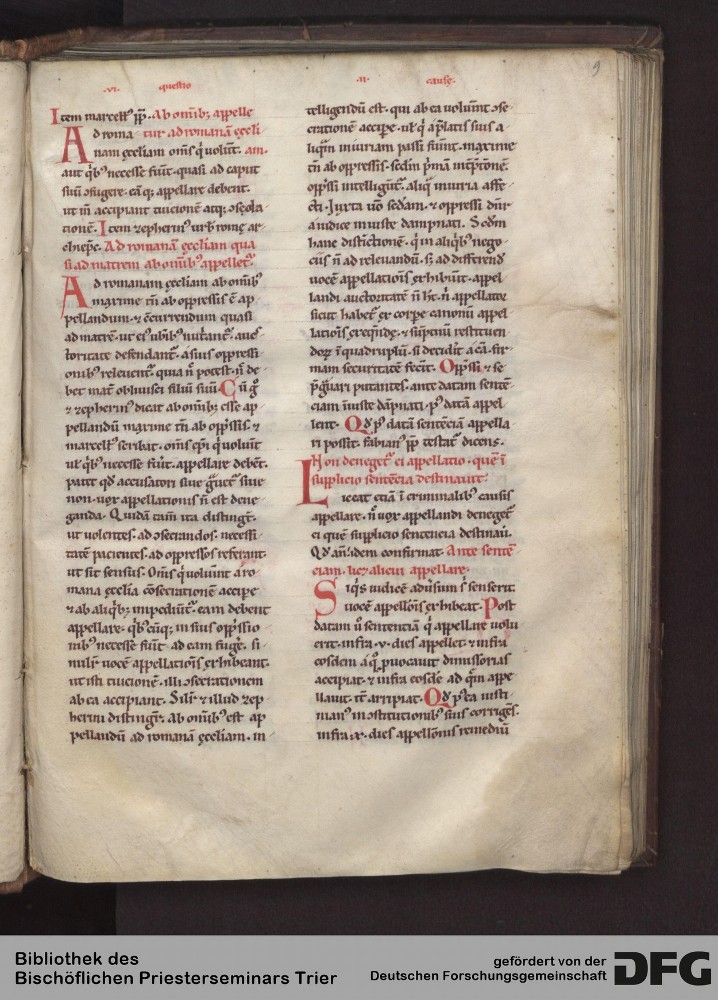 .vi. questio
.ii. cause.
9
Item marcell' pp. Ab omnib; appelle
Ad roma tur ad romanã ęccli
nam ęccliam oms q̃ volũt. am.
aut qͥb' necesse fũit. quasi ad capud
suũ ɔfugere. eãq; appellare debent.
ut in accipiant tuicionẽ atq; ɔsecͣ
tionẽ. Item zepherin' urb' romę ar
chiepc. Ad romanã ęccliam qua
si ad matrem ab omib' appellet.
Ad romanam ęccliam ab omib'
maxime tñ ab oppressis ẽ ap
pellandum. & ɔcurrendum quasi
ad matrẽ. ut ei' ubib' nut
toritate defendant. a suis oppressi
onib' releuent. quia ñ potest. ñ de
bet mat obliuisci filiũ suũ. Cũ g̊
& zepherin' dicat ab omib; esse ap
pellandũ maxime tñ ab opp̃ssis. &
marcell' scribat. oms ep̃i q̃ uoluũt
ul' qͥb' necesse fuit. appellare debẽt.
patet qd' accusatori siue siue
non. uox appellationis ñ est dene
ganda. Quidã tam̃ ita distingt.
ut uolentes. ad ɔsecrandos. necessi
tatẽ pacientes. ad oppressos referant.
ut sit sensus. Oms q̃ uoluũt a ro
mana ęcclia cõsecrationẽ accipe
& ab aliqͥb; impediũt. eam debent
appellare. qͥb' cũq; in suis opp̃ssio
nib' necesse fũit ad eam fug̃e. si
milir uocẽ appellationis exhibeant.
ut isti tuicionẽ. illi ɔsecrationem
ab ea accipiant. Silir & illud zep
herini distingit. Ab omib' est ap
pellandũ ad romanã ęccliam. in
telligendũ est. qui ab ea uolunt ɔse
crationẽ accipe. ul' q̃ a p̃latis suis a
liqͣm iniuriam passi fũit. maxime
tñ ab oppressis. sedm p̃mã int̃p̃tonẽ.
opp̃ssi intelligũt. aliq̃ iniuria affe
cti. Juxta ũo sedam. & oppressi dñr
a iudice iniuste dampnati. Sedm
hanc distinctionẽ. q̃ in aliqͥb' nego
ciis ñ ad releuandũ. s; ad differend
uocẽ appellationis exhibent. appel
landi auctoritatẽ ñ ht. ñ appellator
sicut habet ex corpe canonũ appel
lationis
dor̃ ĩ quadruplũ. si decidit a cã. fir
mam securitatẽ fecit. Opp̃ssi & se
p̃grauari putantes. ante datam sentẽ
ciam iniuste dãpnati. p' datã appel
lent. Qd' p' datã sentẽciã appella
ri possit. fabian' pp testat dicens.
Non deneget ei appellatio. quẽ ĩ
supplicio sentẽcia destinauit.
Liceat etiã ĩ criminalib' causis
appellare. ñ uox appellandi deneget
ei quẽ supplicio sentencia destinau.
Qd' añ idem confirmat. Ante sentẽ
ciam. licz alicui appellare.
Siqͥs iudicẽ adũsum s̃ senserit.
uocẽ appellõis exhibeat. Post
datam ũ sentenciã q̃ appellare uolu
erit. infra .v. dies appellet. & infra
eosdem a q̊ puocauit dimissorias
accipiat. & infra eosdẽ ad qͣm appe
llauit. it arripiat. Qd' p'ea iusti
nian' in ɔstitutionib' suis corriges.
infra .x. dies appellõnis remediũ
Bibliothek des
Bischöflichen Priesterseminars Trier
gefördert von der
Deutschen Forschungsgemeinschaft
DFG